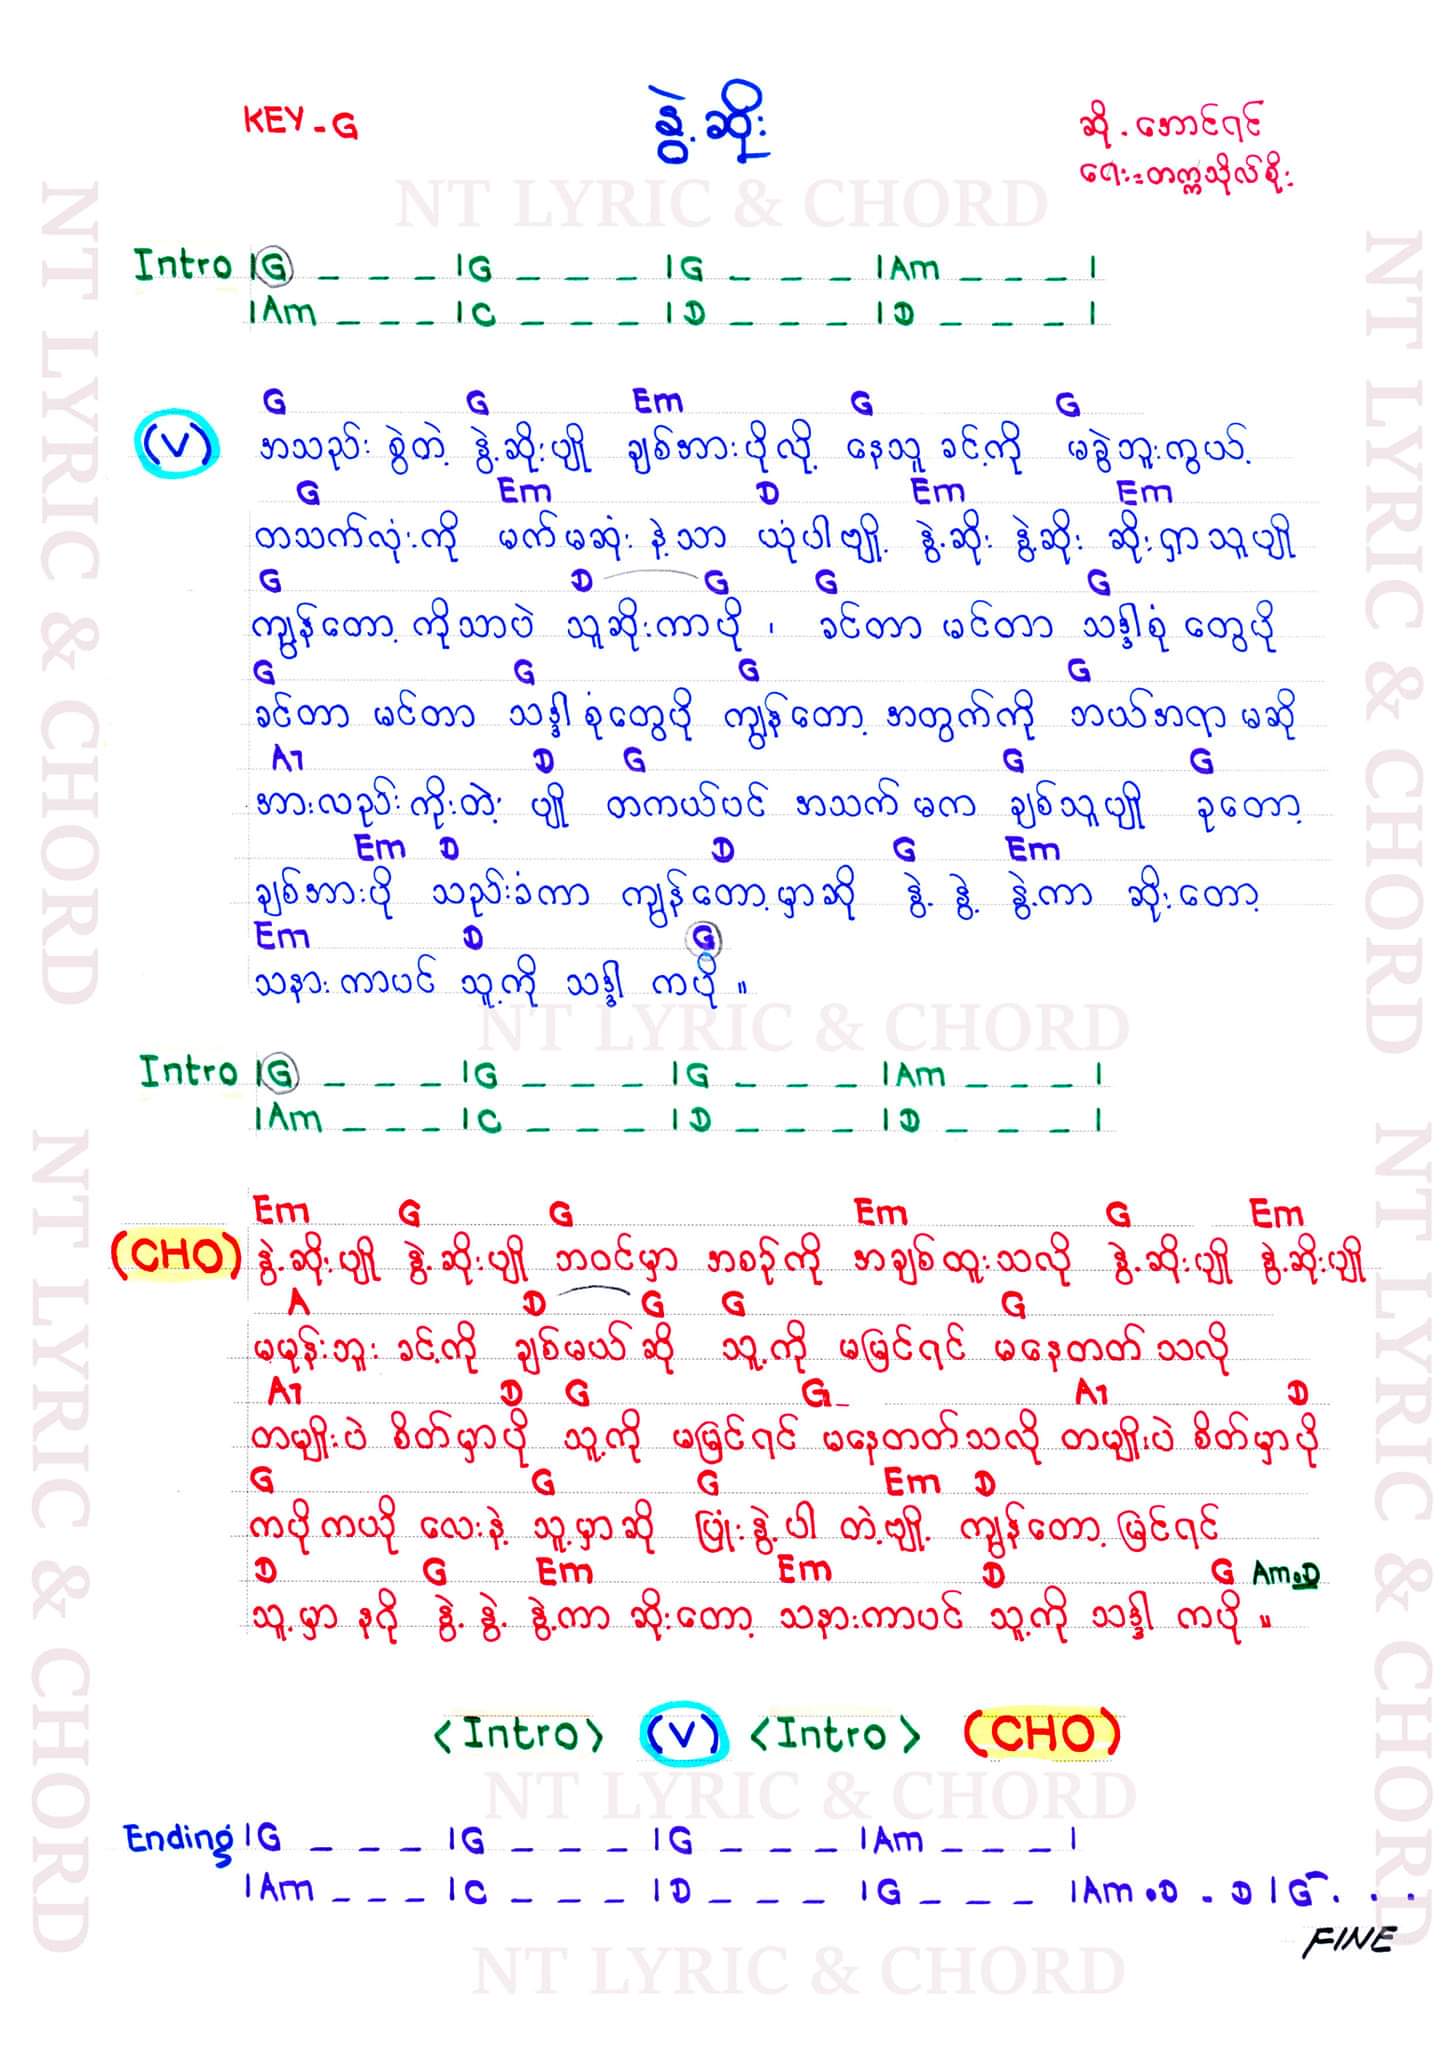 KEY - G
နွဲ့ဆိုး
ဆို - အောင်ရင်
ရေး - တက္ကသိုလ်စိုး
NT LYRIC & CHORD
Intro |G _ _ _ |G _ _ _ |G _ _ _ |Am _ _ _ |
|Am _ _ _ |C _ _ _ |D _ _ _ |D _ _ _ |
G G Em G G
(V) အသည်းစွဲတဲ့ နွဲ့ဆိုးပျို ချစ်အားပိုလို့ နေသူ ခင့်ကို မခွဲဘူးကွယ့်
G Em D Em Em
တသက်လုံးကို မက်မဆုံးနဲ့သာ ယုံပါဗျို့ နွဲ့ဆိုး နွဲ့ဆိုး ဆိုးရှာသူပျို
G D G G G
ကျွန်တော့ ကိုသာပဲ သူဆိုးကာပို ၊ ခင်တာ မင်တာ သဒ္ဒါစုံ တွေပို
G G G G
ခင်တာ မင်တာ သဒ္ဒါစုံတွေပို ကျွန်တော့ အတွက်ကို ဘယ်အရာ မဆို
A7 D G G G
အားလည်းကိုးတဲ့ ပျို တကယ်ပင် အသက်မက ချစ်သူပျို ခုတော့
Em D D G Em
ချစ်အားပို သည်းခံကာ ကျွန်တော့မှာဆို နွဲ့ နွဲ့ နွဲ့ကာ ဆိုးတော့
Em D G
သနားကာပင် သူ့ကို သဒ္ဒါ ကပို ။
NT LYRIC & CHORD
Intro |G _ _ _ |G _ _ _ |G _ _ _ |Am _ _ _ |
|Am _ _ _ |C _ _ _ |D _ _ _ |D _ _ _ |
Em G G Em G Em
(CHO) နွဲ့ဆိုးပျို နွဲ့ဆိုးပျို ဘဝင်မှာ အစဉ်ကို အချစ်ထူးသလို နွဲ့ဆိုးပျို နွဲ့ဆိုးပျို
A D G G G
မမုန်းဘူး ခင့်ကို ချစ်မယ်ဆို သူ့ကို မမြင်ရင် မနေတတ်သလို
A7 D G G A7 D
တမျိုးပဲ စိတ်မှာပို သူ့ကို မမြင်ရင် မနေတတ်သလို တမျိုးပဲ စိတ်မှာပို
G G G Em D
ကပိုကယို လေးနဲ့ သူ့မှာဆို ပြုံးနွဲ့ပါ တဲ့ဗျို့ ကျွန်တော့ မြင်ရင်
D G Em Em D G Am.D
သူ့မှာ နဂို နွဲ့ နွဲ့ နွဲ့ကာ ဆိုးတော့ သနားကာပင် သူ့ကို သဒ္ဒါ ကပို ။
<Intro> (V) <Intro> (CHO)
NT LYRIC & CHORD
Ending |G _ _ _ |G _ _ _ |G _ _ _ |Am _ _ _ |
|Am _ _ _ |C _ _ _ |D _ _ _ |G _ _ _ |Am . D . D | G . . .
FINE
NT LYRIC & CHORD
NT LYRIC & CHORD
NT LYRIC & CHORD
NT LYRIC & CHORD
NT LYRIC & CHORD